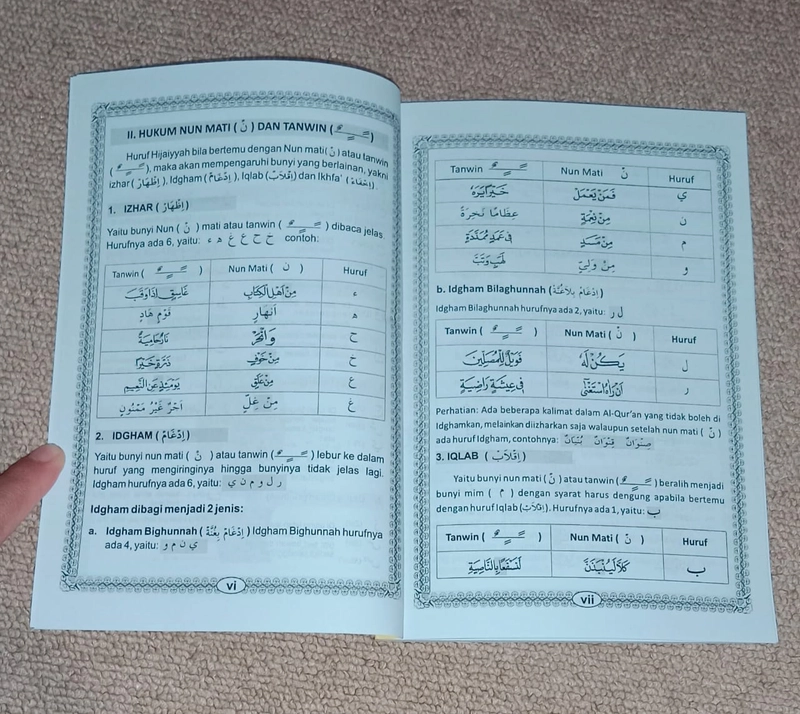 II. HUKUM NUN MATI ( نْ ) DAN TANWIN ( ـًـٍـٌ )
Huruf Hijaiyyah bila bertemu dengan Nun mati ( نْ ) atau tanwin
( ـًـٍـٌ ), maka akan mempengaruhi bunyi yang berlainan, yakni
izhar ( اِظْهَارْ ), Idgham ( اِدْغَامْ ), Iqlab (اِقْلَابْ) dan Ikhfa' (اِخْفَاءْ).
1. IZHAR ( اِظْهَارْ )
Yaitu bunyi Nun ( نْ ) mati atau tanwin ( ـًـٍـٌ ) dibaca jelas
Hurufnya ada 6, yaitu: خ ح ع غ ه ء contoh:
Tanwin ( ـًـٍـٌ ) Nun Mati ( نْ ) Huruf
غَاسِقٍ اِذَا وَقَبَ مِنْ اَهْلِ الْكِتَابِ ء
قَوْمٍ هَادٍ اَنْهَارٌ ه
نَارٌ حَامِيَةٌ وَانْحَرْ ح
ذَرَّةٍ خَيْرًا مِنْ خَوْفٍ خ
يَوْمَئِذٍ عَنِ النَّعِيْمِ مِنْ عَلَقٍ ع
اَجْرٌ غَيْرُ مَمْنُوْنٍ مِنْ غِلٍّ غ
2. IDGHAM ( اِدْغَامْ )
Yaitu bunyi nun mati ( نْ ) atau tanwin ( ـًـٍـٌ ) lebur ke dalam
huruf yang mengiringinya hingga bunyinya tidak jelas lagi.
Idgham hurufnya ada 6, yaitu: ر ل و م ن ي
Idgham dibagi menjadi 2 jenis:
a. Idgham Bighunnah ( اِدْغَامْ بِغُنَّةْ ) Idgham Bighunnah hurufnya
ada 4, yaitu: ي ن م و
vi
Tanwin ـًـٍـٌ Nun Mati نْ Huruf
خَيْرًا يَرَهُ فَمَنْ يَعْمَلْ ي
عِظَامًا نَخِرَةً مِنْ نِعْمَةٍ ن
فِى عَمَدٍ مُمَدَّدَةٍ مِنْ مَسَدٍ م
لَهَبٍ وَتَبَّ مِنْ وَلِيٍّ و
b. Idgham Bilaghunnah (اِدْغَامْ بِلَاغُنَّةْ)
Idgham Bilaghunnah hurufnya ada 2, yaitu: ل ر
Tanwin ( ـًـٍـٌ ) Nun Mati ( نْ ) Huruf
فَوَيْلٌ لِلْمُصَلِّيْنَ يَكُنْ لَهُ ل
فِى عِيْشَةٍ رَاضِيَةٍ اَنْ رَاٰهُ اسْتَغْنٰى ر
Perhatian: Ada beberapa kalimat dalam Al-Qur'an yang tidak boleh di
Idghamkan, melainkan diizharkan saja walaupun setelah nun mati ( نْ )
ada huruf Idgham, contohnya: صِنْوَانٌ قِنْوَانٌ بُنْيَانٌ
3. IQLAB ( اِقْلَابْ )
Yaitu bunyi nun mati ( نْ ) atau tanwin ( ـًـٍـٌ ) beralih menjadi
bunyi mim ( م ) dengan syarat harus dengung apabila bertemu
dengan huruf Iqlab (اِقْلَابْ). Hurufnya ada 1, yaitu: ب
Tanwin ( ـًـٍـٌ ) Nun Mati ( نْ ) Huruf
لَنَسْفَعًا بِالنَّاصِيَةِ كَلَّا لَيُنْبَذَنَّ ب
vii